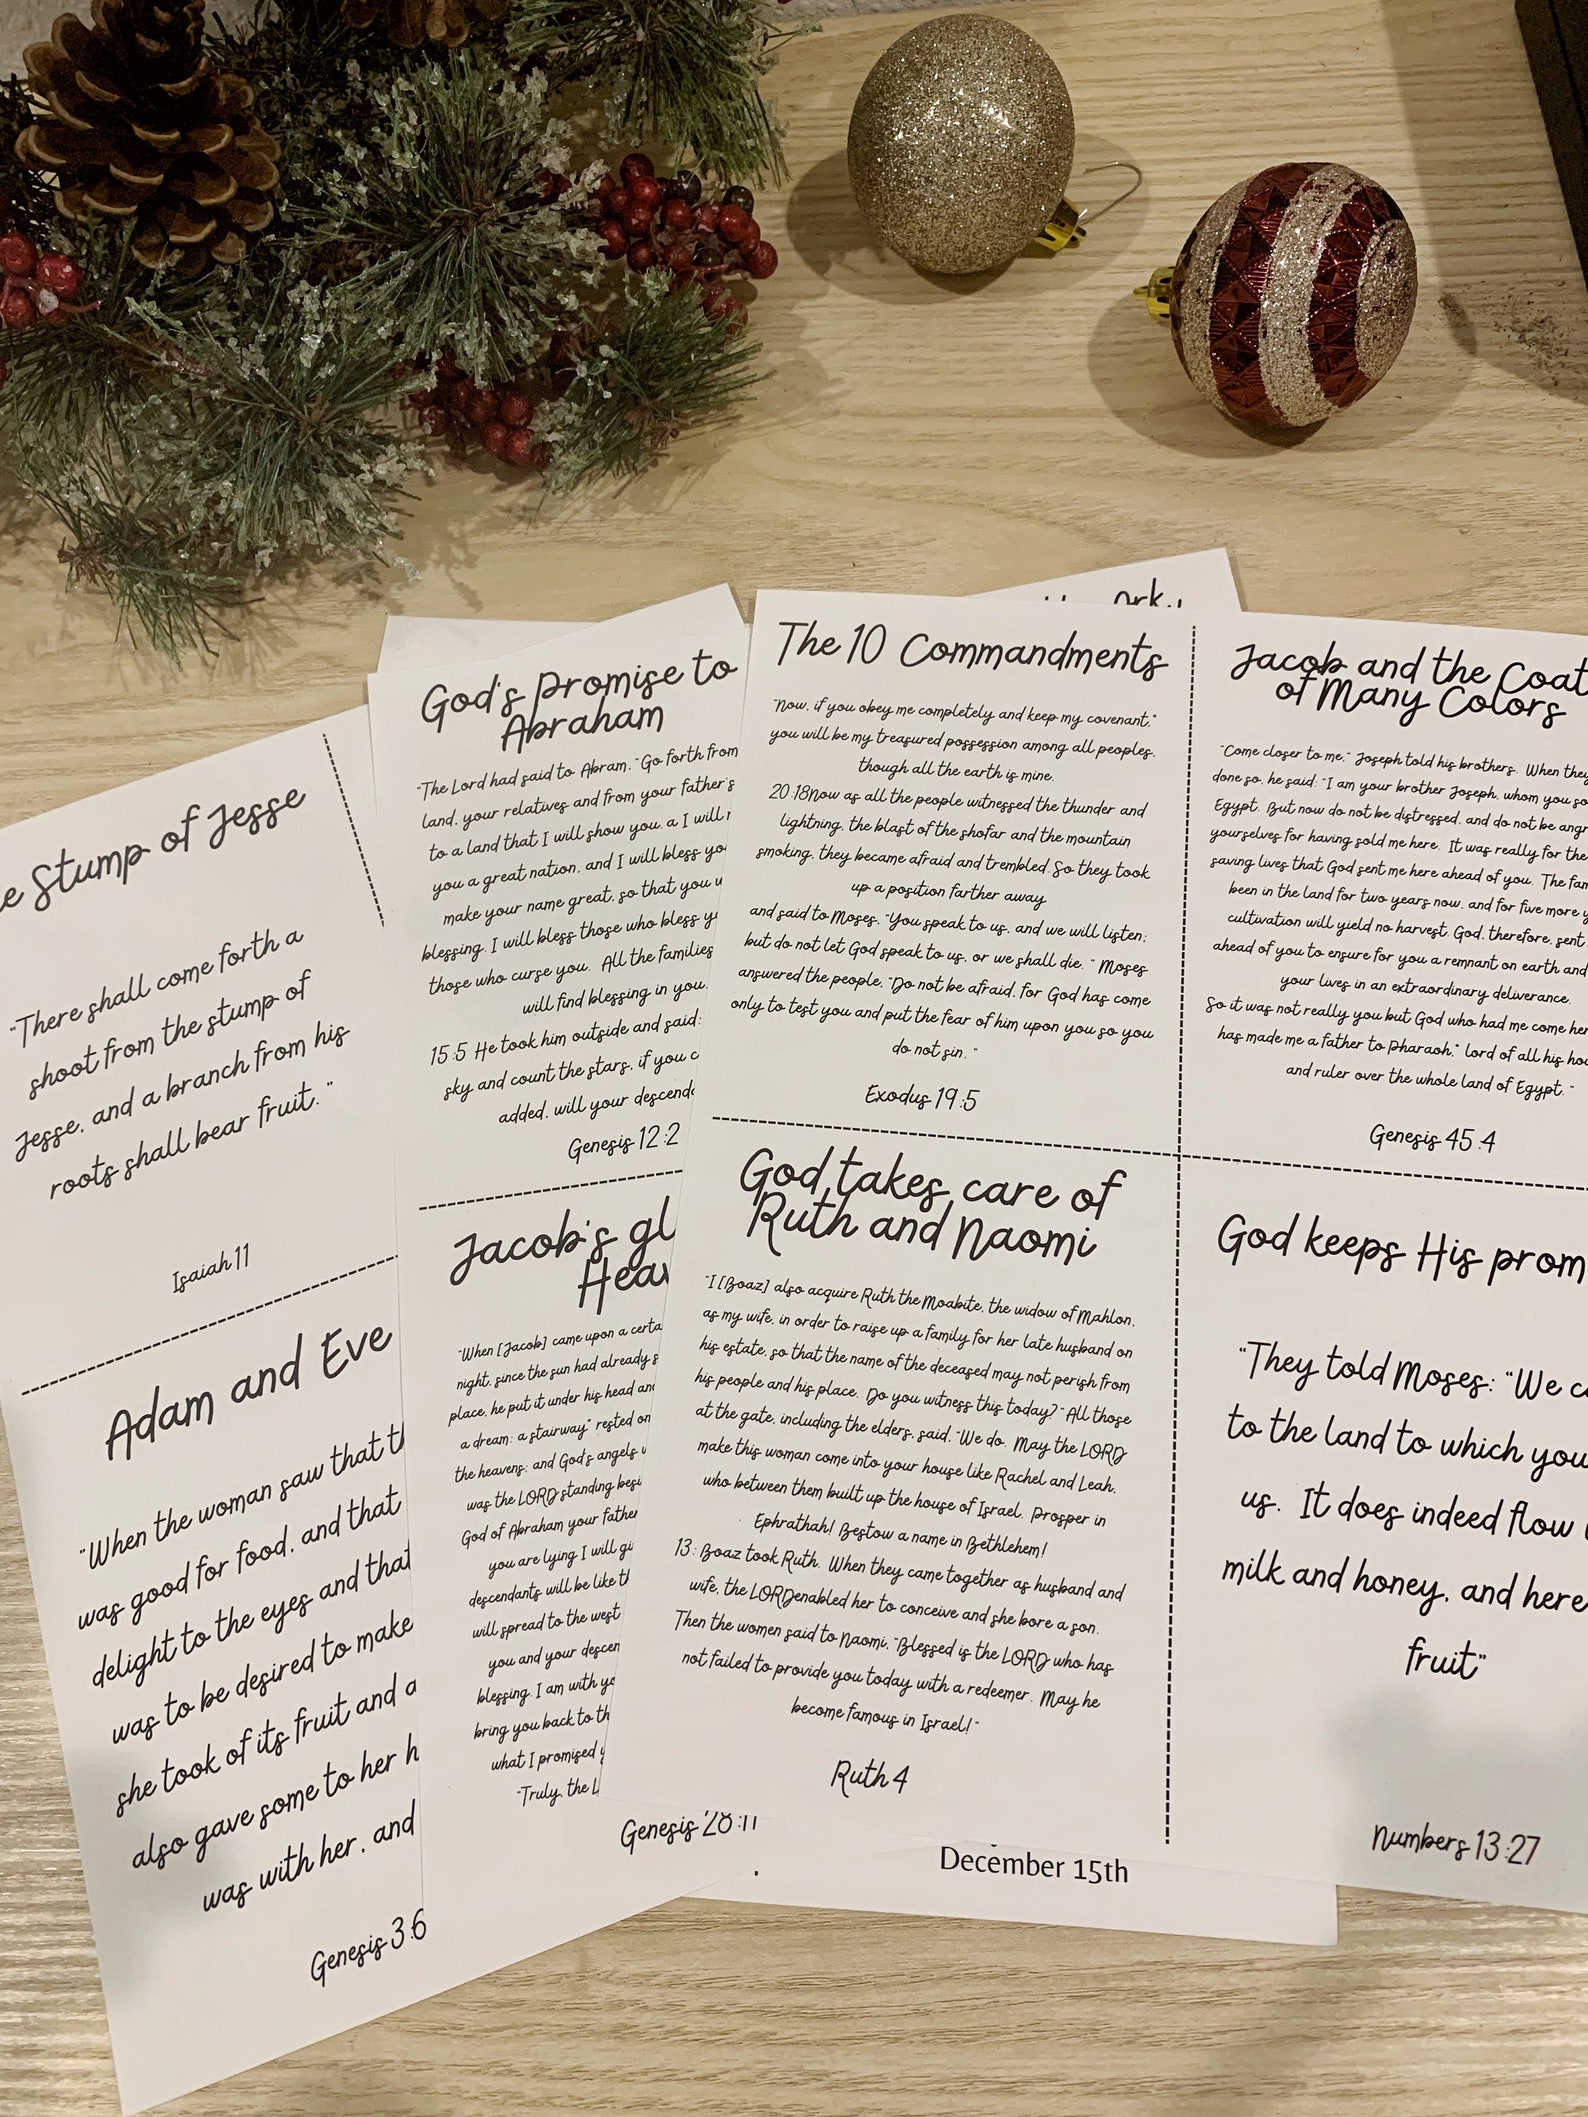 e Stump of Jesse
"There shall come forth a
shoot from the stump of
Jesse, and a branch from his
roots shall bear fruit."
Isaiah 11
Adam and Eve
"When the woman saw that th
was good for food, and that
delight to the eyes and that
was to be desired to make
she took of its fruit and a
also gave some to her h
was with her, and
Genesis 3:6
God's Promise to
Abraham
"The Lord had said to Abram, "Go forth from
land, your relatives and from your father's
to a land that I will show you, a I will
you a great nation, and I will bless yo
make your name great, so that you
blessing. I will bless those who bless y
those who curse you. All the families
will find blessing in you.
15:5 He took him outside and said:
sky and count the stars, if you c
added, will your descend
Genesis 12:2
Jacob's gl
Heav
"When [Jacob] came upon a certa
night, since the sun had already s
place, he put it under his head an
a dream: a stairway* rested on
the heavens; and God's angels
was the LORD standing besi
God of Abraham your father
you are lying I will gi
descendants will be like th
will spread to the west
you and your descen
blessing. I am with yo
bring you back to th
what I promised y
"Truly, the L
Genesis 28:11
The 10 Commandments
"Now, if you obey me completely and keep my covenant,*
you will be my treasured possession among all peoples,
though all the earth is mine.
20:18Now as all the people witnessed the thunder and
lightning, the blast of the shofar and the mountain
smoking, they became afraid and trembled. So they took
up a position farther away
and said to Moses, "You speak to us, and we will listen;
but do not let God speak to us, or we shall die. " Moses
answered the people, "Do not be afraid, for God has come
only to test you and put the fear of him upon you so you
do not sin. "
Exodus 19:5
Jacob and the Coat
of Many Colors
"Come closer to me," Joseph told his brothers. When they
done so, he said: "I am your brother Joseph, whom you so
Egypt. But now do not be distressed, and do not be angr
yourselves for having sold me here. It was really for the
saving lives that God sent me here ahead of you. The fam
been in the land for two years now, and for five more y
cultivation will yield no harvest. God, therefore, sent
ahead of you to ensure for you a remnant on earth and
your lives in an extraordinary deliverance.
So it was not really you but God who had me come her
has made me a father to Pharaoh,* lord of all his hou
and ruler over the whole land of Egypt. "
Genesis 45:4
God takes care of
Ruth and Naomi
"I [Boaz] also acquire Ruth the Moabite, the widow of Mahlon,
as my wife, in order to raise up a family for her late husband on
his estate, so that the name of the deceased may not perish from
his people and his place. Do you witness this today?" All those
at the gate, including the elders, said, "We do. May the LORD
make this woman come into your house like Rachel and Leah,
who between them built up the house of Israel. Prosper in
Ephrathah! Bestow a name in Bethlehem!
13: Boaz took Ruth. When they came together as husband and
wife, the LORDenabled her to conceive and she bore a son.
Then the women said to Naomi, "Blessed is the LORD who has
not failed to provide you today with a redeemer. May he
become famous in Israel!"
Ruth 4
God keeps His prom
"They told Moses: "We ca
to the land to which you
us. It does indeed flow
milk and honey, and here
fruit"
Numbers 13:27
December 15th